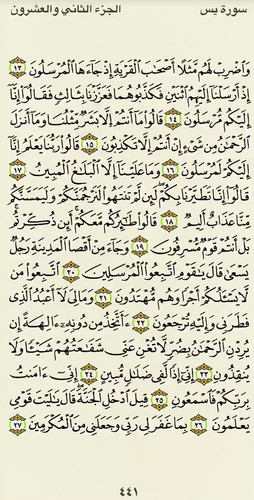 سورة يس
الجزء الثاني والعشرون
وَٱضْرِبْ لَهُم مَّثَلًا أَصْحَٰبَ ٱلْقَرْيَةِ إِذْ جَآءَهَا ٱلْمُرْسَلُونَ ١٣
إِذْ أَرْسَلْنَآ إِلَيْهِمُ ٱثْنَيْنِ فَكَذَّبُوهُمَا فَعَزَّزْنَا بِثَالِثٍ فَقَالُوٓا۟ إِنَّآ
إِلَيْكُم مُّرْسَلُونَ ١٤ قَالُوا۟ مَآ أَنتُمْ إِلَّا بَشَرٌ مِّثْلُنَا وَمَآ أَنزَلَ
ٱلرَّحْمَٰنُ مِن شَىْءٍ إِنْ أَنتُمْ إِلَّا تَكْذِبُونَ ١٥ قَالُوا۟ رَبُّنَا يَعْلَمُ إِنَّآ
إِلَيْكُمْ لَمُرْسَلُونَ ١٦ وَمَا عَلَيْنَآ إِلَّا ٱلْبَلَٰغُ ٱلْمُبِينُ ١٧
قَالُوٓا۟ إِنَّا تَطَيَّرْنَا بِكُمْ لَئِن لَّمْ تَنتَهُوا۟ لَنَرْجُمَنَّكُمْ وَلَيَمَسَّنَّكُم
مِّنَّا عَذَابٌ أَلِيمٌ ١٨ قَالُوا۟ طَٰٓئِرُكُم مَّعَكُمْ أَئِن ذُكِّرْتُم
بَلْ أَنتُمْ قَوْمٌ مُّسْرِفُونَ ١٩ وَجَآءَ مِنْ أَقْصَا ٱلْمَدِينَةِ رَجُلٌ
يَسْعَىٰ قَالَ يَٰقَوْمِ ٱتَّبِعُوا۟ ٱلْمُرْسَلِينَ ٢٠ ٱتَّبِعُوا۟ مَن
لَّا يَسْـَٔلُكُمْ أَجْرًا وَهُم مُّهْتَدُونَ ٢١ وَمَا لِىَ لَآ أَعْبُدُ ٱلَّذِى
فَطَرَنِى وَإِلَيْهِ تُرْجَعُونَ ٢٢ ءَأَتَّخِذُ مِن دُونِهِۦٓ ءَالِهَةً إِن
يُرِدْنِ ٱلرَّحْمَٰنُ بِضُرٍّ لَّا تُغْنِ عَنِّى شَفَٰعَتُهُمْ شَيْـًٔا وَلَا
يُنقِذُونِ ٢٣ إِنِّىٓ إِذًا لَّفِى ضَلَٰلٍ مُّبِينٍ ٢٤ إِنِّىٓ ءَامَنتُ
بِرَبِّكُمْ فَٱسْمَعُونِ ٢٥ قِيلَ ٱدْخُلِ ٱلْجَنَّةَ قَالَ يَٰلَيْتَ قَوْمِى
يَعْلَمُونَ ٢٦ بِمَا غَفَرَ لِى رَبِّى وَجَعَلَنِى مِنَ ٱلْمُكْرَمِينَ ٢٧
٤٤١